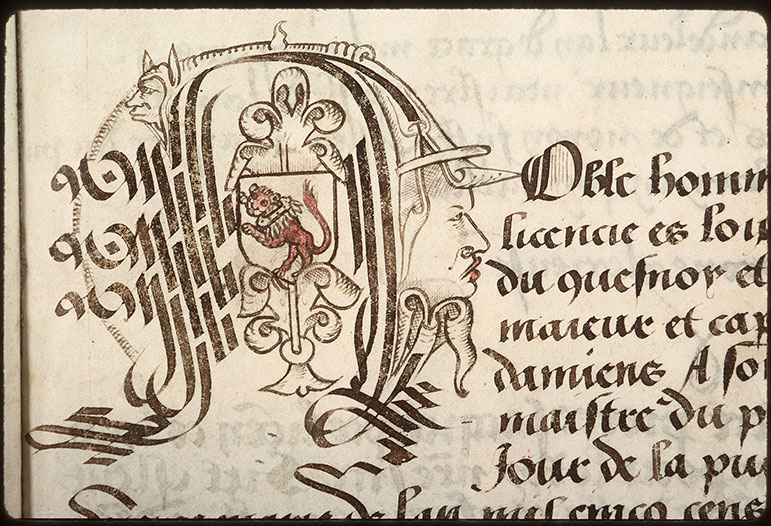 Noble homm
licencie es loix
du quesnoy et
maieur et cap
damiens A so
maistre du p
Jour de la pu
de lan mil cincq cens